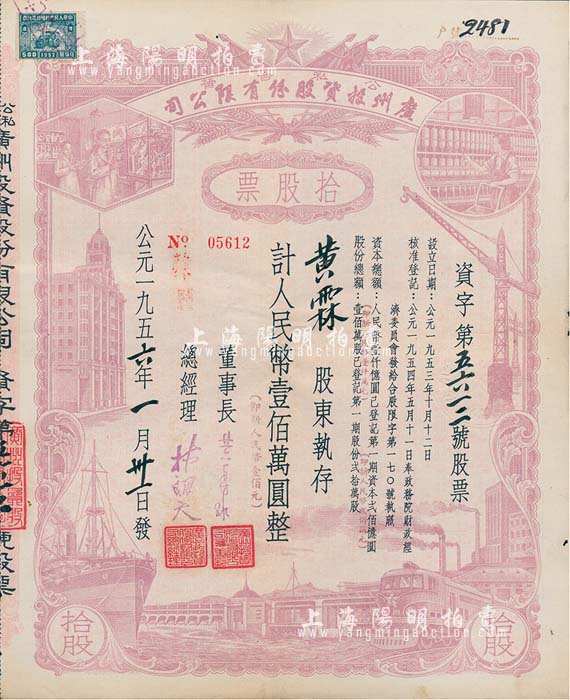 2481
500 1952
公私
廣州投資股份有限公司
拾股票
資字第五六一二號股票
設立日期：公元一九五三年十月十二日
核准登記：公元一九五四年五月十一日奉政務院財政經
濟委員會發給合股限字第一七〇號執照
資本總額：人民幣壹仟億圓已登記第一期資本弍佰億圓
股份總額：壹佰萬股已登記第一期股份弍拾萬股
黃霖 股東執存
計人民幣壹佰萬圓整
(即新人民幣壹佰元)
董事長
總經理
№ 05612
公元一九五六年一月卅一日發
公私廣州投資股份有限公司 資字第 號股票
拾股
拾股
上海陽明拍賣
www.yangmingauction.com
上海陽明拍賣
www.yangmingauction.com
上海陽明拍賣
www.yangmingauction.com